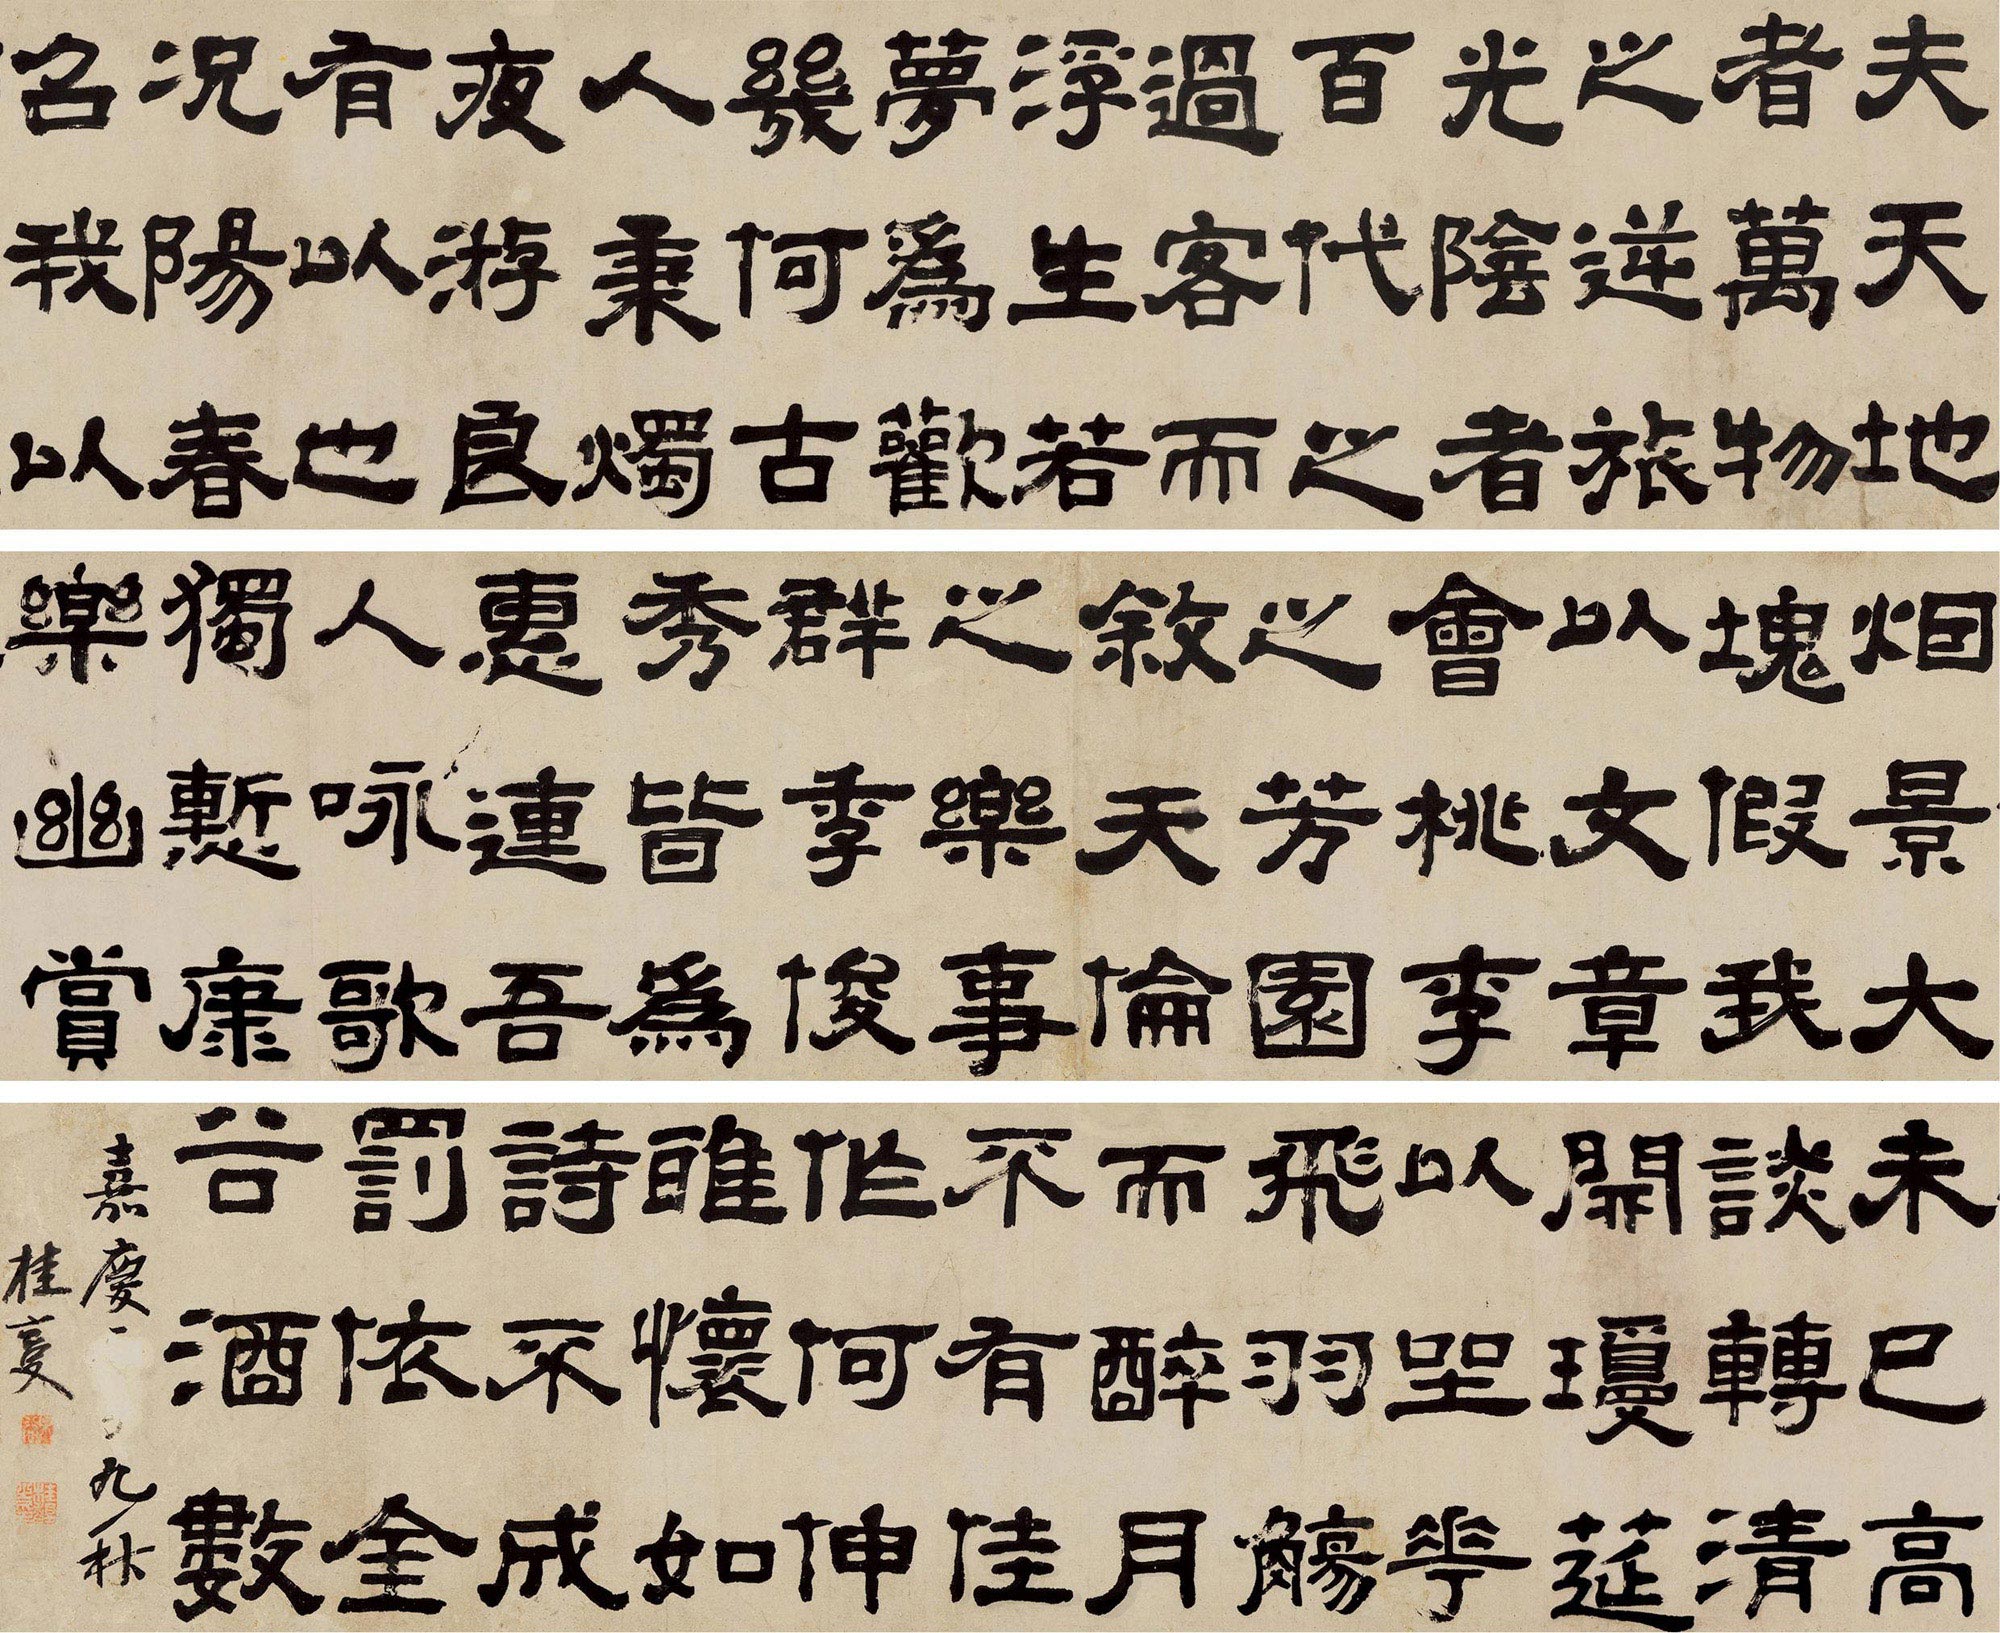 夫天地
者萬物
之逆旅
光陰者
百代之
過客而
浮生若
夢爲歡
幾何古
人秉燭
夜游良
有以也
况陽春
召我以
烟景大
塊假我
以文章
會桃李
之芳園
敘天倫
之樂事
群季俊
秀皆爲
惠連吾
人咏歌
獨慙康
樂幽賞
未已高
談轉清
開瓊筵
以坐花
飛羽觴
而醉月
不有佳
作何伸
雅懷如
詩不成
罰依金
谷酒數
嘉慶九秋
桂复